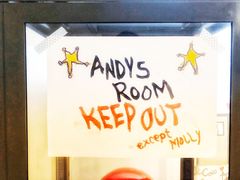 ANDYS
ROOM
KEEP OUT
except MOLLY